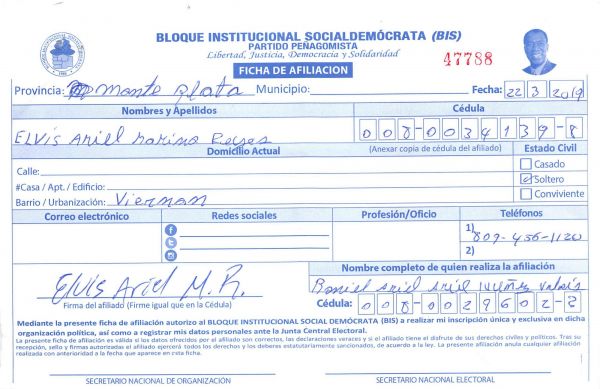 BLOQUE INSTITUCIONAL SOCIALDEMÓCRATA (BIS)
PARTIDO PEÑAGOMISTA
Libertad, Justicia, Democracia y Solidaridad
47788
FICHA DE AFILIACION
Provincia: Monte Plata Municipio: Fecha: 22 3 2019
Nombres y Apellidos Cédula
ELVIS Ariel Marino Reyes 008-0034139-8
Domicilio Actual (Anexar copia de cédula del afiliado) Estado Civil
Calle: Casado
#Casa / Apt. / Edificio: Soltero
Barrio / Urbanización: Viernan Conviviente
Correo electrónico Redes sociales Profesión/Oficio Teléfonos
1) 809-456-1120
2)
Elvis Ariel M. R.
Firma del afiliado (Firme igual que en la Cédula)
Nombre completo de quien realiza la afiliación
Ariel Ariel Nuñez
Cédula: 008-0029602-2
Mediante la presente ficha de afiliación autorizo al BLOQUE INSTITUCIONAL SOCIALDEMÓCRATA (BIS) a realizar mi inscripción única y exclusiva en dicha
organización política, así como a registrar mis datos personales ante la Junta Central Electoral.
La presente ficha de afiliación es válida si los datos ofrecidos por el afiliado son correctos, las declaraciones veraces y si el afiliado tiene el disfrute de sus derechos civiles y políticos. Tras su
recepción, sello y firmas autorizadas el afiliado ejercerá todos los derechos y los deberes estatutariamente sancionados, de acuerdo a la ley. La presente afiliación anula cualquier afiliación
realizada con anterioridad a la fecha que aparece en esta ficha.
SECRETARIO NACIONAL DE ORGANIZACIÓN SECRETARIO NACIONAL ELECTORAL